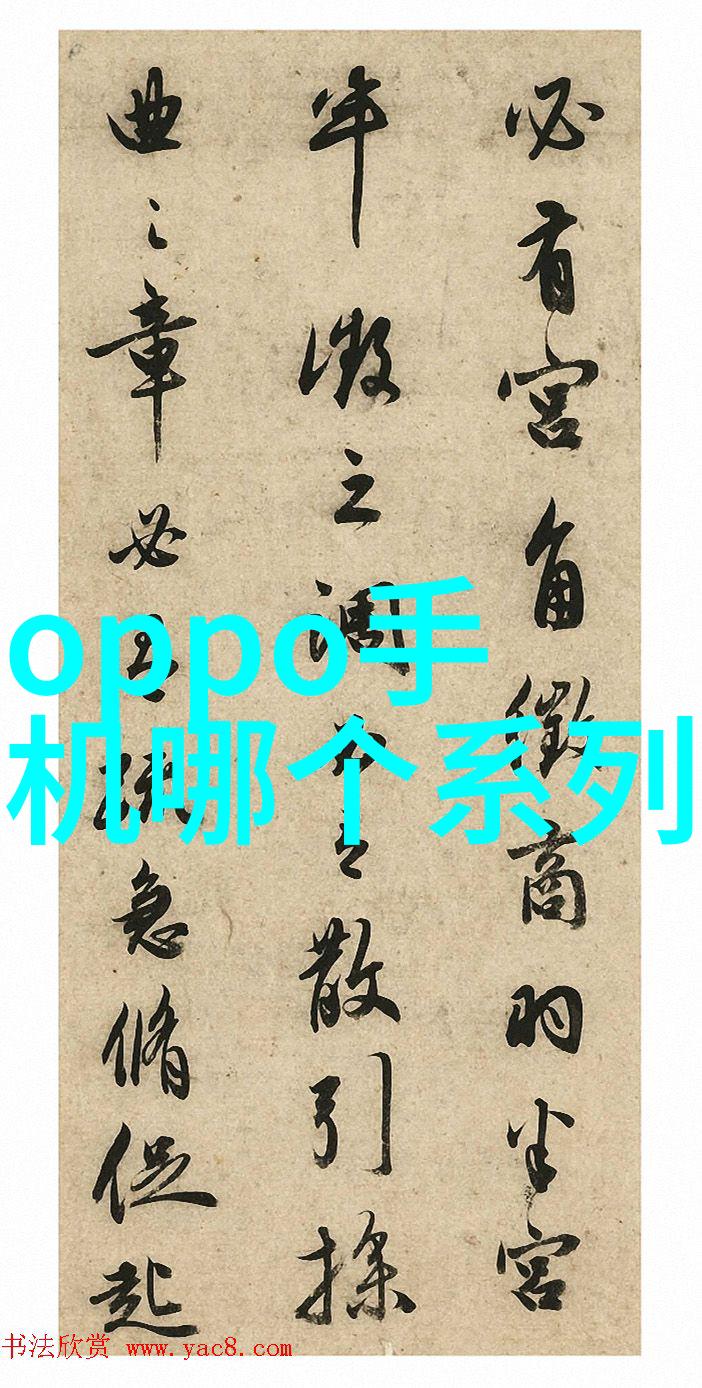 必有宮角徵商羽半宮
半徵之調必立散引操
曲之章必立疏急脩促起
oppo手
机哪个系列
书法欣赏 www.yac8.com